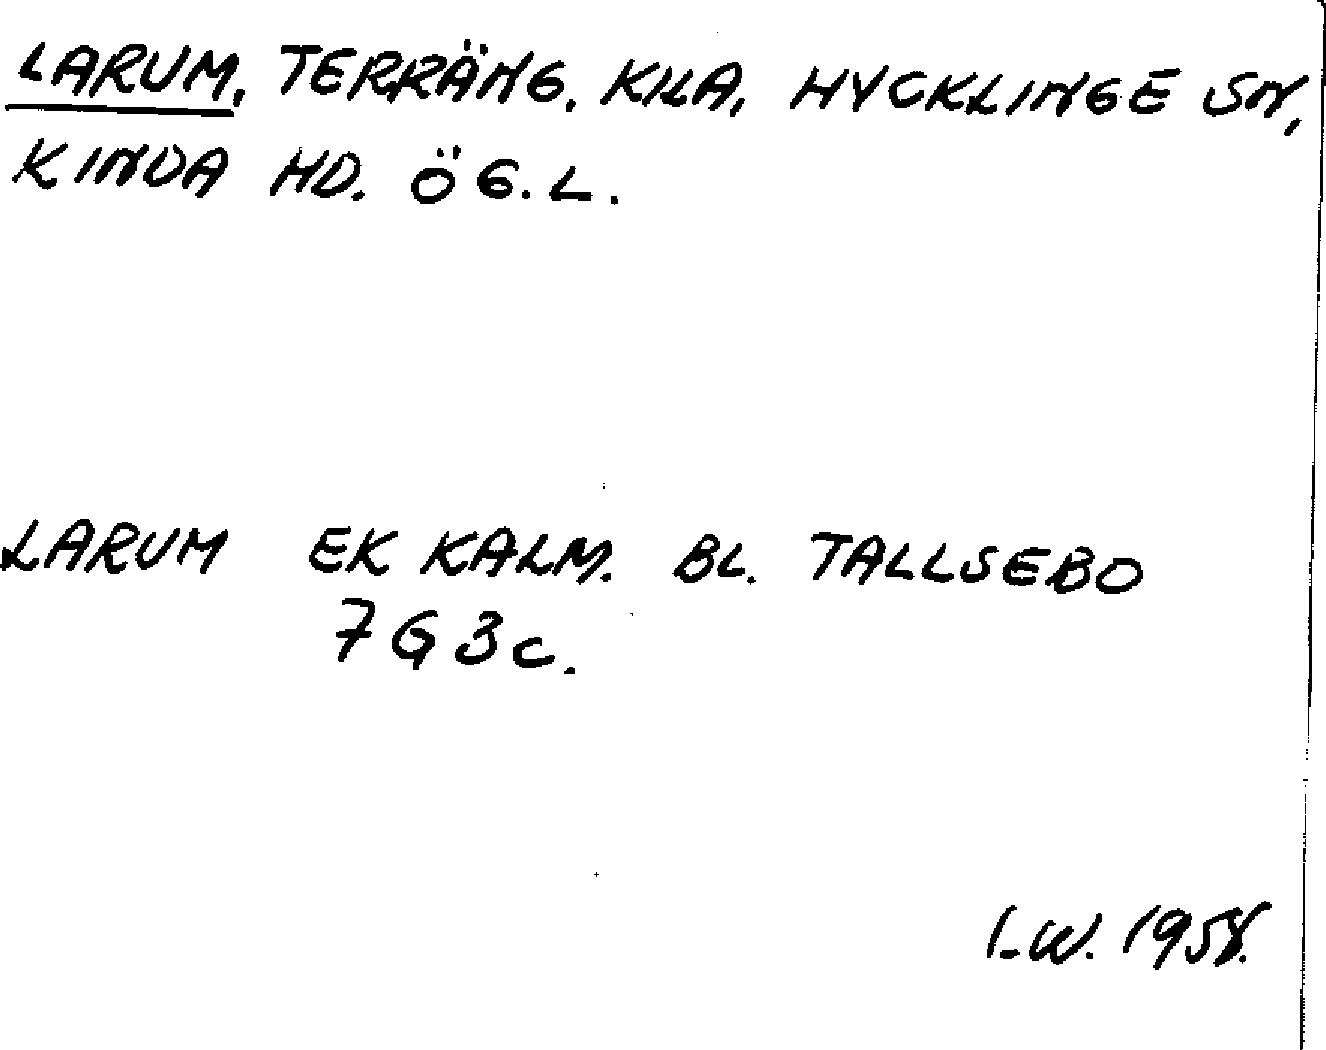 LARUM, TERRÄNG. KILA, HYCKLINGE SN,
KINDA HD. ÖG.L.
LARUM EK KALM. BL. TALLSEBO
7G3c.
I.W. 1958.